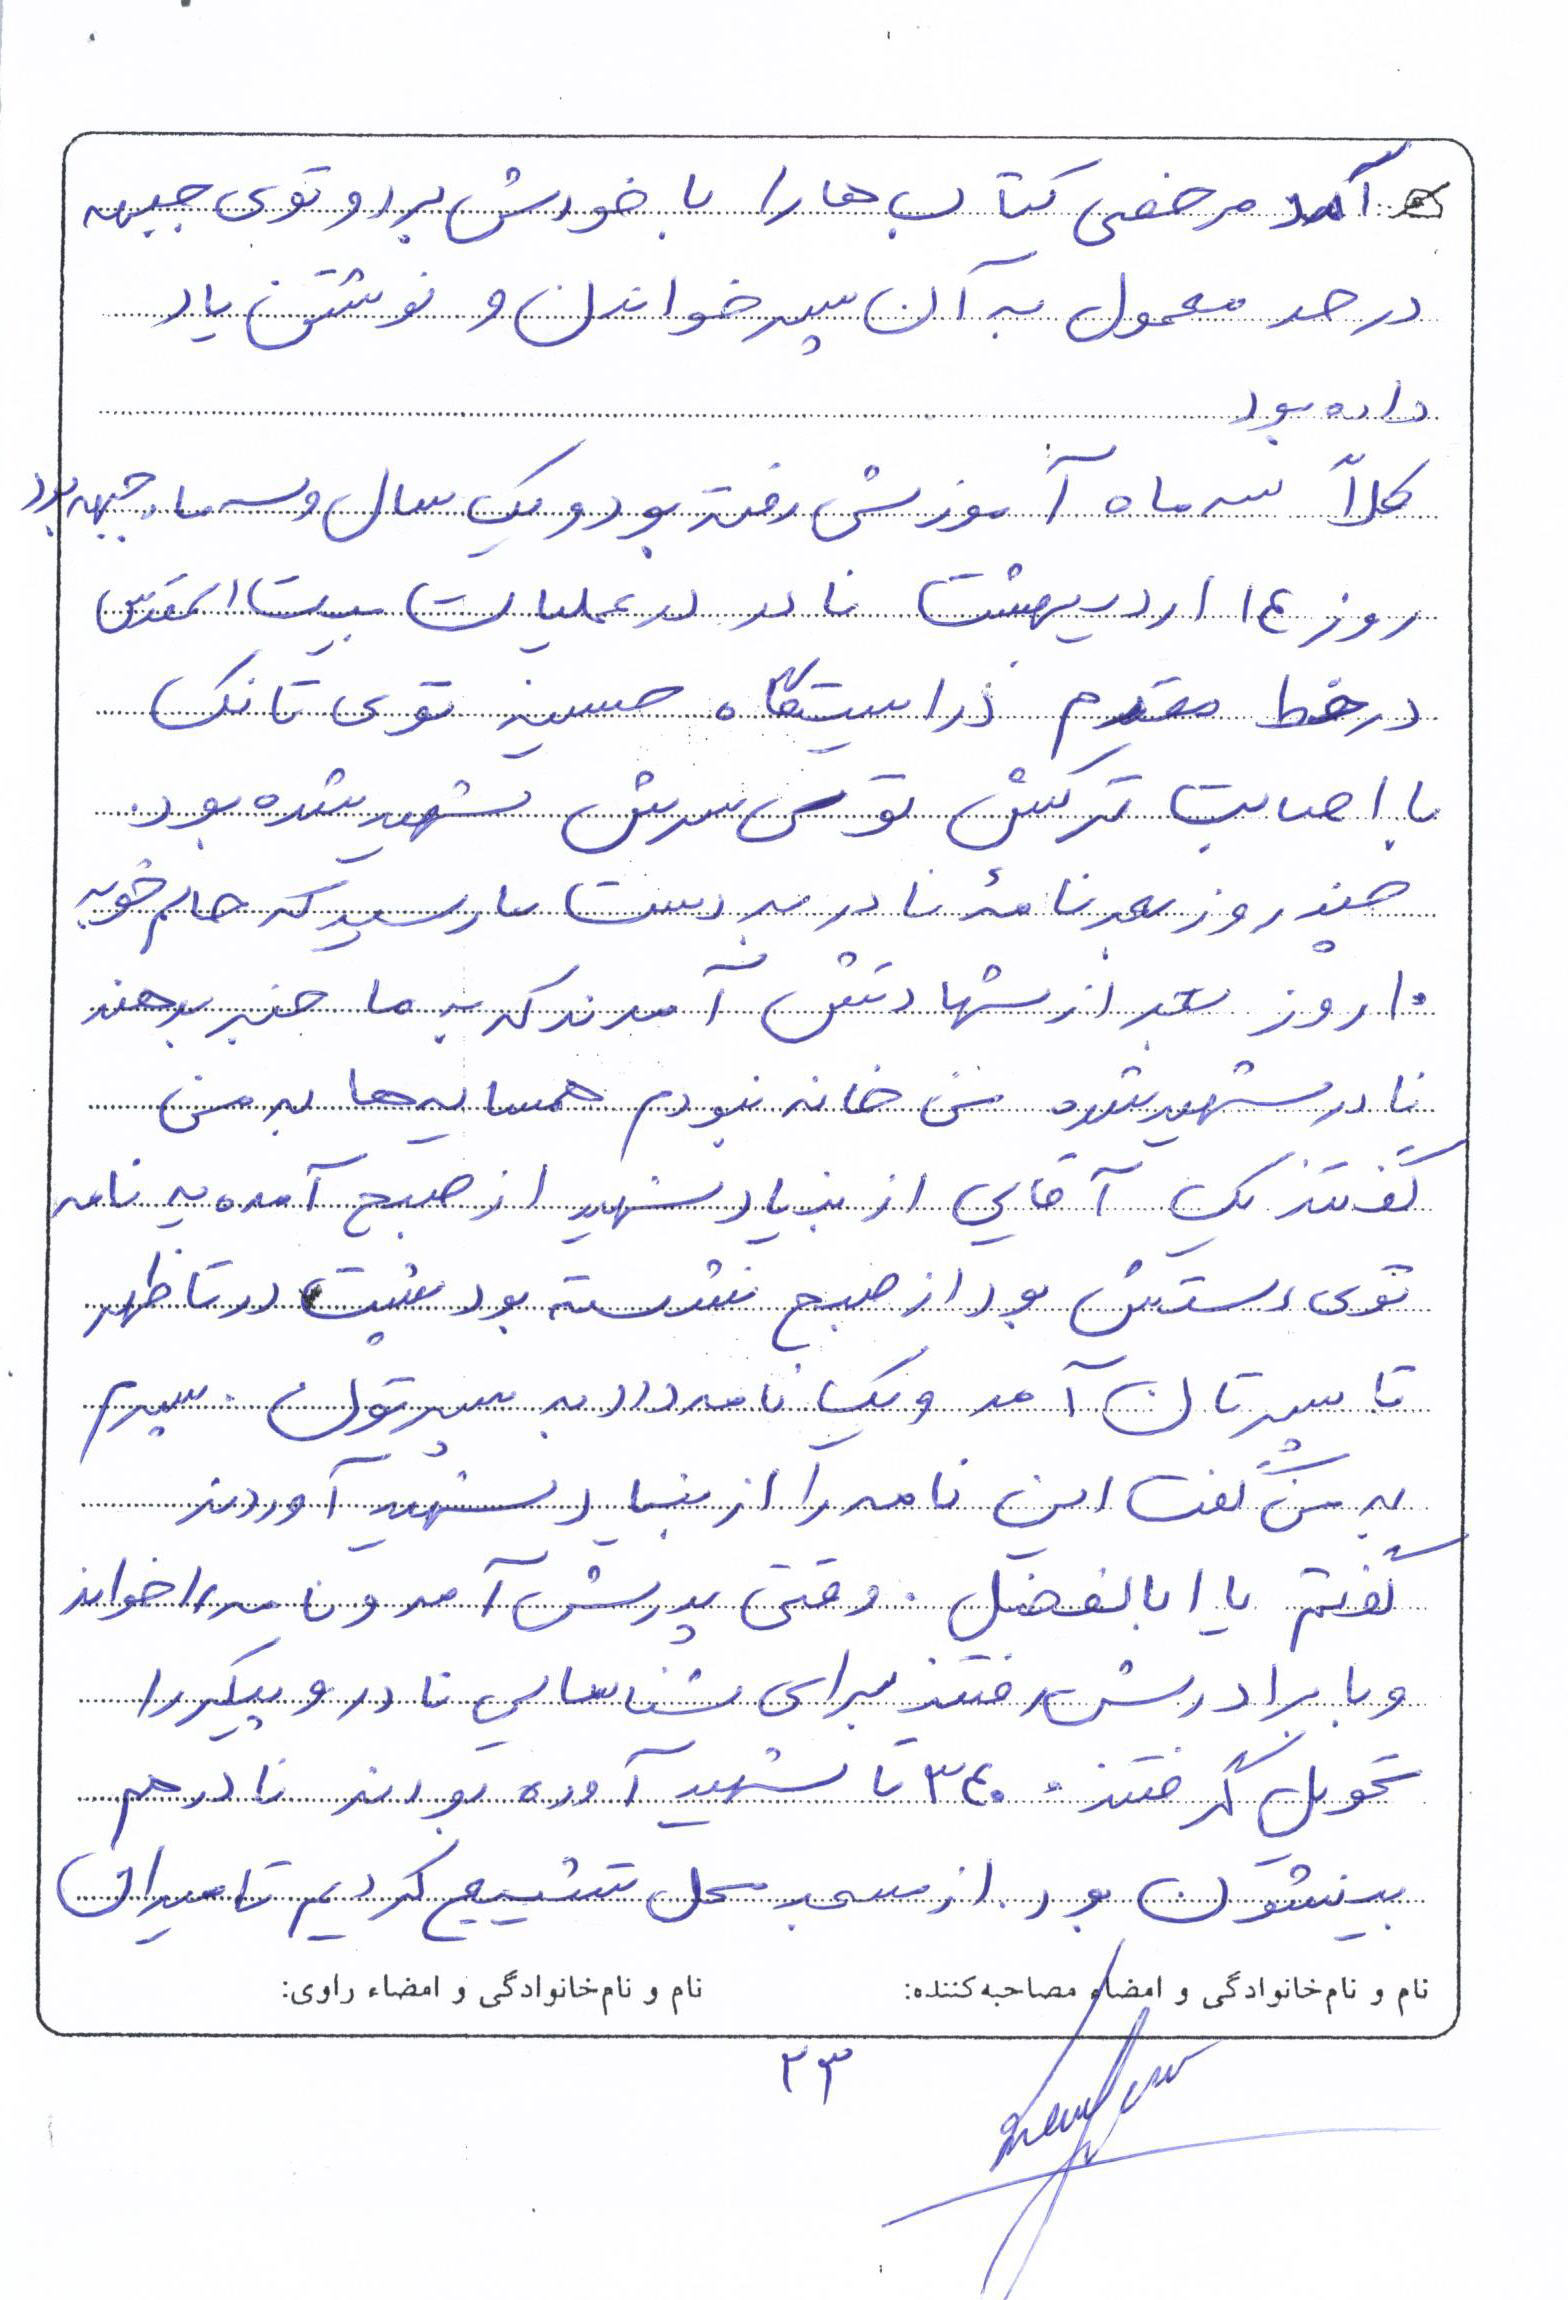 آمد مرخصی کتاب ها را با خودش برد و توی جبهه
در حد معمول به آن پسر خواندن و نوشتن یاد
داده بود
کلاً سه ماه آموزش رفته بود و یک سال و سه ماه جبهه بود
روز ١٤ اردیبهشت نادر در عملیات بیت المقدس
در خط مقدم در ایستگاه حسینیه توی تانک
با اصابت ترکش توی سرش شهید شده بود.
چند روز بعد نامهٔ نادر به دست ما رسید که حالم خوبه
١٠ روز بعد از شهادتش آمدند که به ما خبر بدهند
نادر شهید شده من خانه نبودم همسایه‌ها به من
گفتند یک آقایی از بنیاد شهید از صبح آمده یه نامه
توی دستش بود از صبح نشسته بود پشت در تا ظهر
تا پسرتان آمد و یک نامه داد به پسرتون. پسرم
به من گفت این نامه را از بنیاد شهید آوردند
گفتم یا ابالفضل. وقتی پدرش آمد و نامه را خواند
و با برادرش رفتند برای شناسایی نادر و پیکر را
تحویل گرفتند. ٣٤٠ تا شهید آورده بودند نادر هم
بینشون بود. از مسجد محل تشییع کردیم تا میدان
نام و نام‌خانوادگی و امضاء مصاحبه‌کننده: نام و نام‌خانوادگی و امضاء راوی:
٢٣